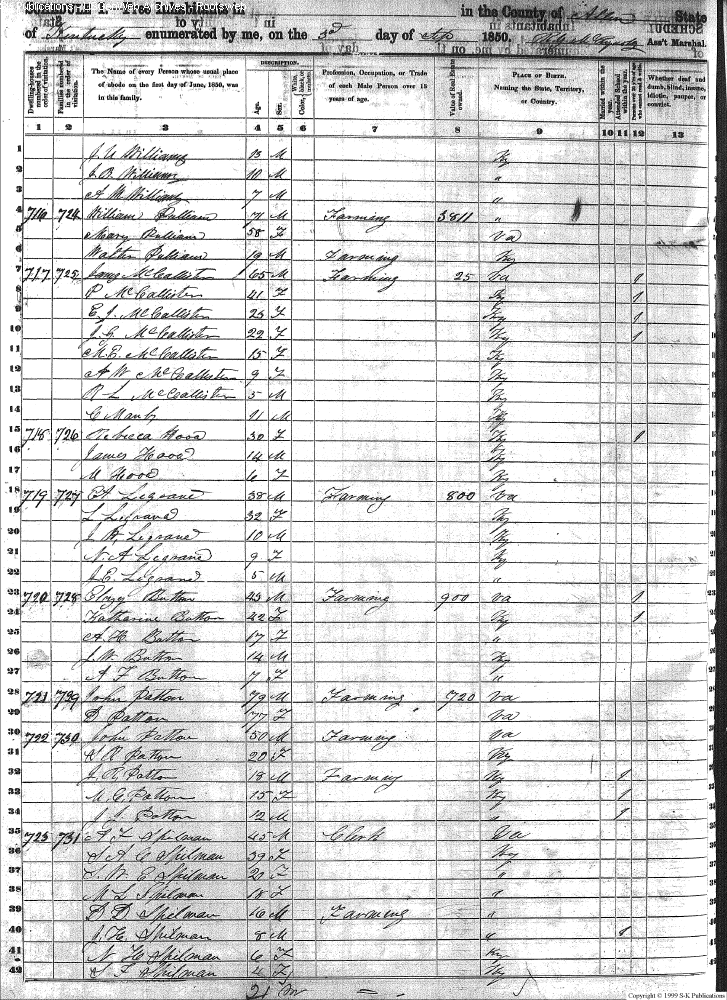 in the County of Allen State
of Kentucky enumerated by me, on the 3d day of Sep 1850. Ass't Marshal.
DESCRIPTION.
Dwelling-houses numbered in the order of visitation.
Families numbered in the order of visitation.
The Name of every Person whose usual place of abode on the first day of June, 1850, was in this family.
Age.
Sex.
Color, White, black, or mulatto.
Profession, Occupation, or Trade of each Male Person over 15 years of age.
Value of Real Estate owned.
PLACE OF BIRTH. Naming the State, Territory, or Country.
Married within the year.
Attended School within the year.
Whether deaf and dumb, blind, insane, idiotic, pauper, or convict.
1 2 3 4 5 6 7 8 9 10 11 12 13
1 J. U Williams 13 M Ky
2 J. B. Williams 10 M "
3 A M Williams 7 M "
4 716 724 William Pulliam 71 M Farming 3811 "
5 Mary Pulliam 58 F Va
6 Walter Pulliam 19 M Farming Ky
7 717 725 James McCallister 65 M Farming 25 Va 1
8 P McCallister 41 F Ky 1
9 E. J. McCallister 25 F Ky 1
10 J. C. McCallister 22 F Ky 1
11 M. E. McCallister 15 F Ky
12 A W McCallister 9 F Ky
13 R L McCallister 5 M Ky
14 C 11 M Ky
15 718 726 Rebecca Hood 30 F Ky 1
16 James Hood 14 M Ky
17 M Hood 6 F Ky
18 719 727 Legrand 38 M Farming 800 Va
19 L Legrand 32 F Ky
20 J. B. Legrand 10 M Ky
21 N. A Legrand 9 F Ky
22 J. E. Legrand 5 M "
23 720 728 Button 43 M Farming 900 Va 1
24 Katharine Button 42 F Ky 1
25 A. H. Button 17 F "
26 J. W Button 14 M Ky
27 A F Button 7 F "
28 721 729 John Patton 79 M Farming 720 Va
29 D Patton 77 F Va
30 722 730 John Patton 50 M Farming Va
31 S R Patton 20 F Ky
32 J. R. Patton 18 M Farming Ky 1
33 M. C. Patton 15 F Ky 1
34 J. J. Patton 12 M " 1
35 723 731 A. F Spilman 45 M Clerk Va
36 S A C Spilman 39 F Ky
37 W. E. Spilman 20 F "
38 M L Spilman 18 F "
39 D D Spilman 16 M Farming "
40 J. H. Spilman 8 M " 1
41 N H Spilman 6 F Ky
42 S F Spilman 4 F Ky
21 m
Copyright © 1999 S-K Publications